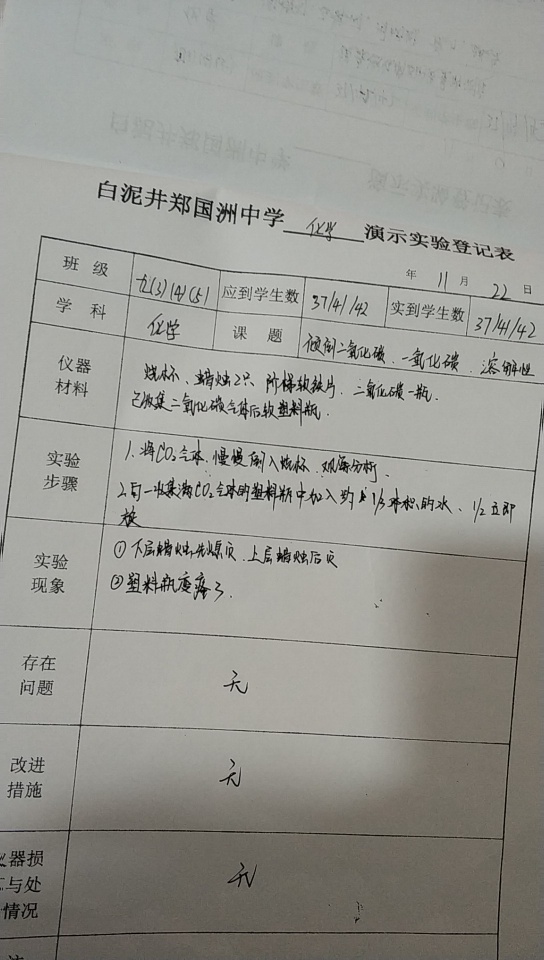 白泥井郑国洲中学 化学 演示实验登记表
年 11 月 22 日
班 级 九(3)(4)(5) 应到学生数 37/41/42 实到学生数 37/41/42
学 科 化学 课 题 倾倒二氧化碳、二氧化碳、溶解性
仪器
材料
烧杯、蜡烛2只 阶梯软铁片、二氧化碳一瓶、
已收集二氧化碳气体后软塑料瓶.
实验
步骤
1. 将CO₂气体、慢慢倒入烧杯、观海分析.
2. 向一收集满CO₂气体的塑料瓶中加入约 1/3体积的水、 立即
实验
现象
①下层蜡烛先熄灭、上层蜡烛后灭
②塑料瓶变瘪了.
存在
问题
无
改进
措施
无
器损
与处
情况
无